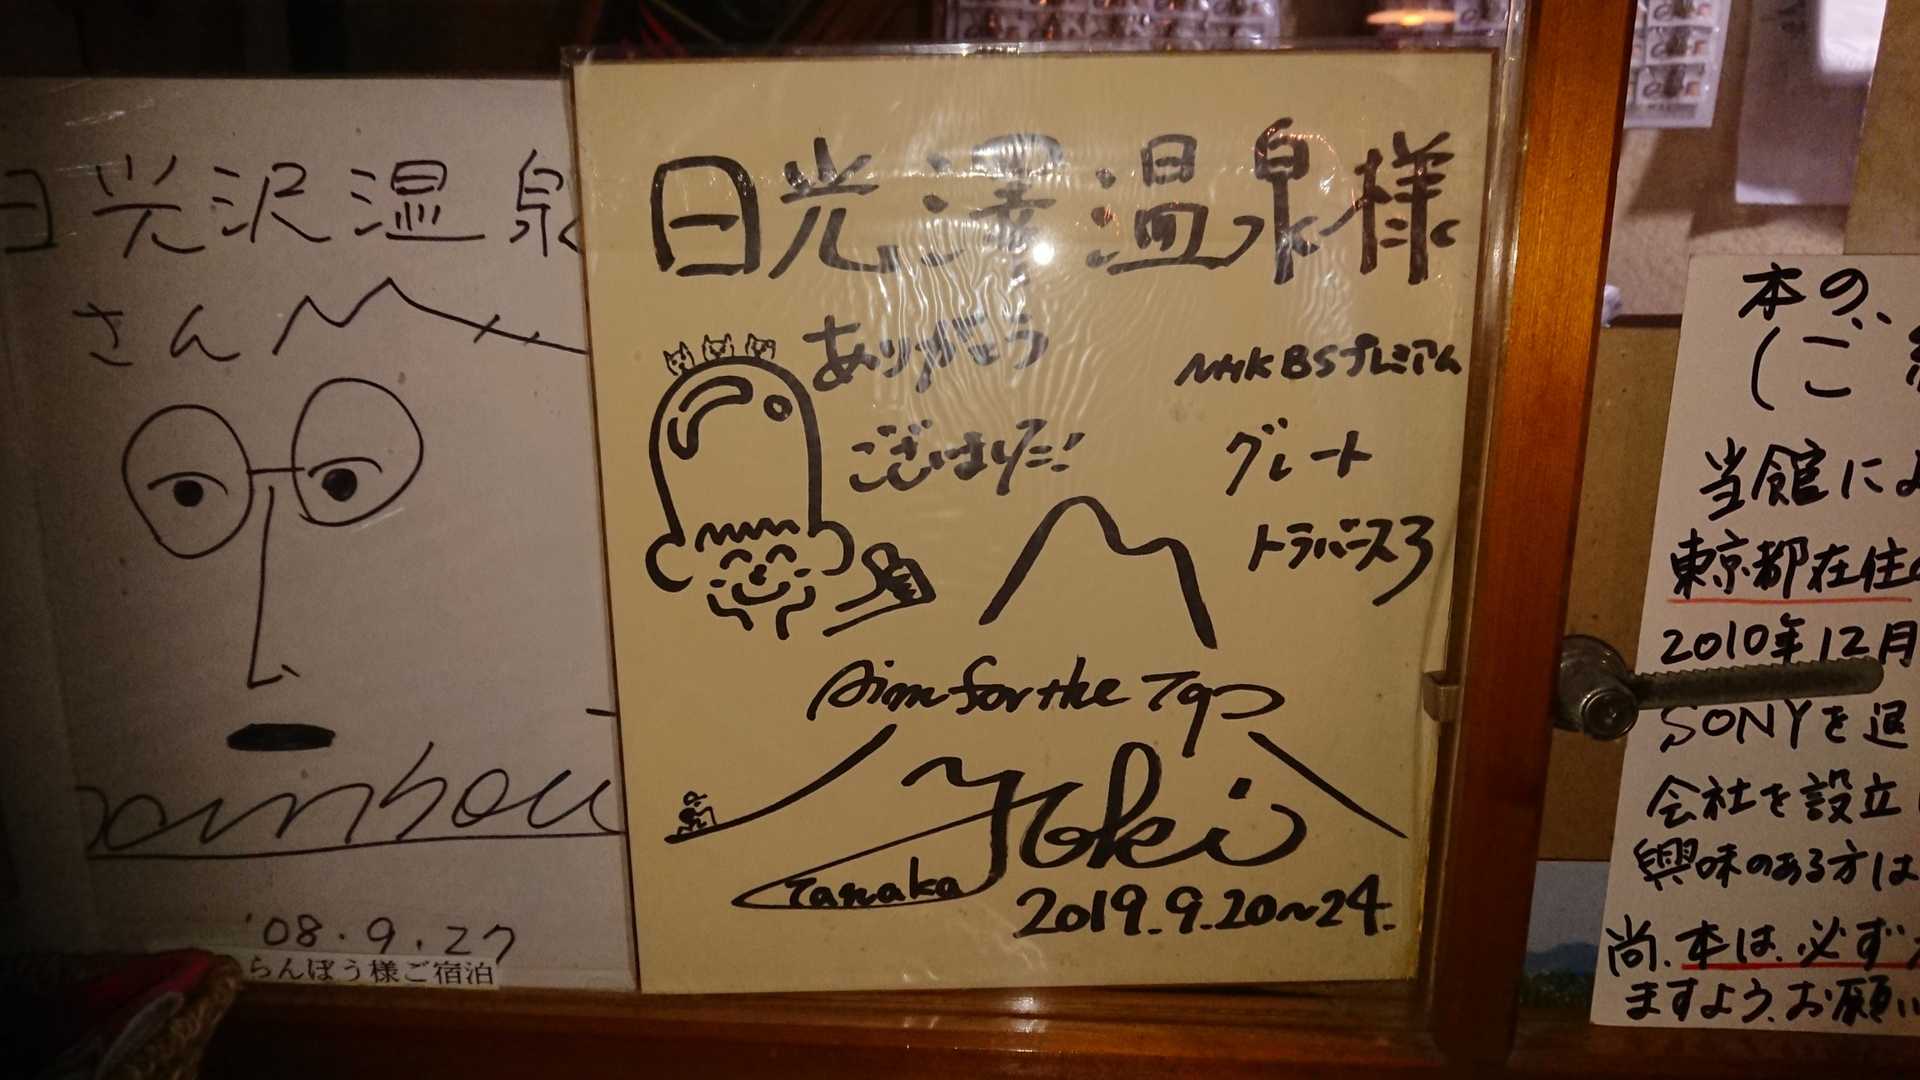 日光沢温泉
さん
'08.9.27
らんぼう様ご宿泊
日光澤温泉様
ありがとう
ございました!
NHK BSプレミアム
グレート
トラバース3
Aim for the Top
Yoki
Tanaka
2019.9.20~24.
本の、
(ご
当館に
東京都在住
2010年12月
SONYを退
会社を設立
興味のある方は
尚、本は、必ず
ますよう、お願い